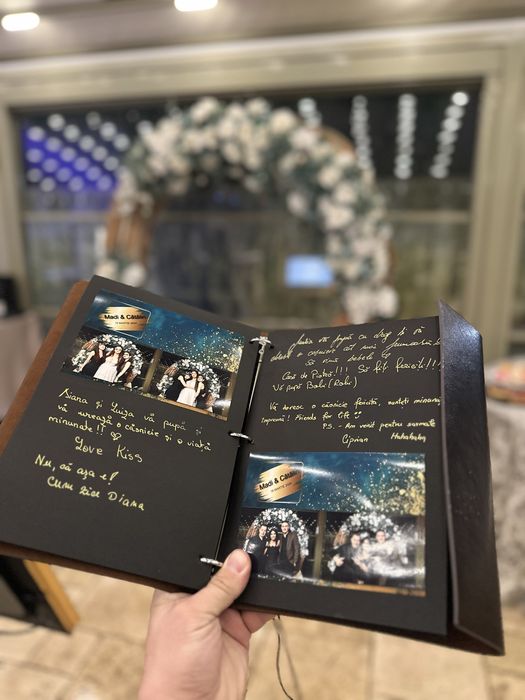 Madi & Cătălin
Diana și Luiza vă pupă și
vă urează o căsnicie și o viață
minunate!! ♡
Love Kiss
Nu, că așa e!
Cum zice Diana
vă pupă cu drag și vă
o căsnicie cât mai
Să vină bebele
Casă de Piatră!!! Să fiți fericiți!!!
Vă pupă
Vă doresc o căsnicie fericită, sunteți minunați
împreună! Friends for life
P.S. - Am venit pentru sarmale
Ciprian Hahahaha
Madi & Cătălin